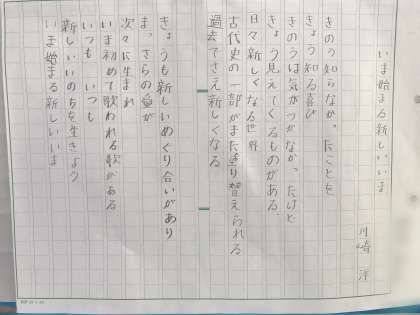 いま始まる新しいいま
川崎洋
きのう知らなかったことを
きょう知る喜び
きのうは気がつかなかったけど
きょう見えてくるものがある
日々新しくなる世界
古代史の一部がまた塗り替えられる
過去でさえ新しくなる
きょうも新しいめぐり合いがあり
まっさらの愛が
次々に生まれ
いま初めて歌われる歌がある
いつも いつも
新しいいのちを生きよう
いま始まる新しいいま